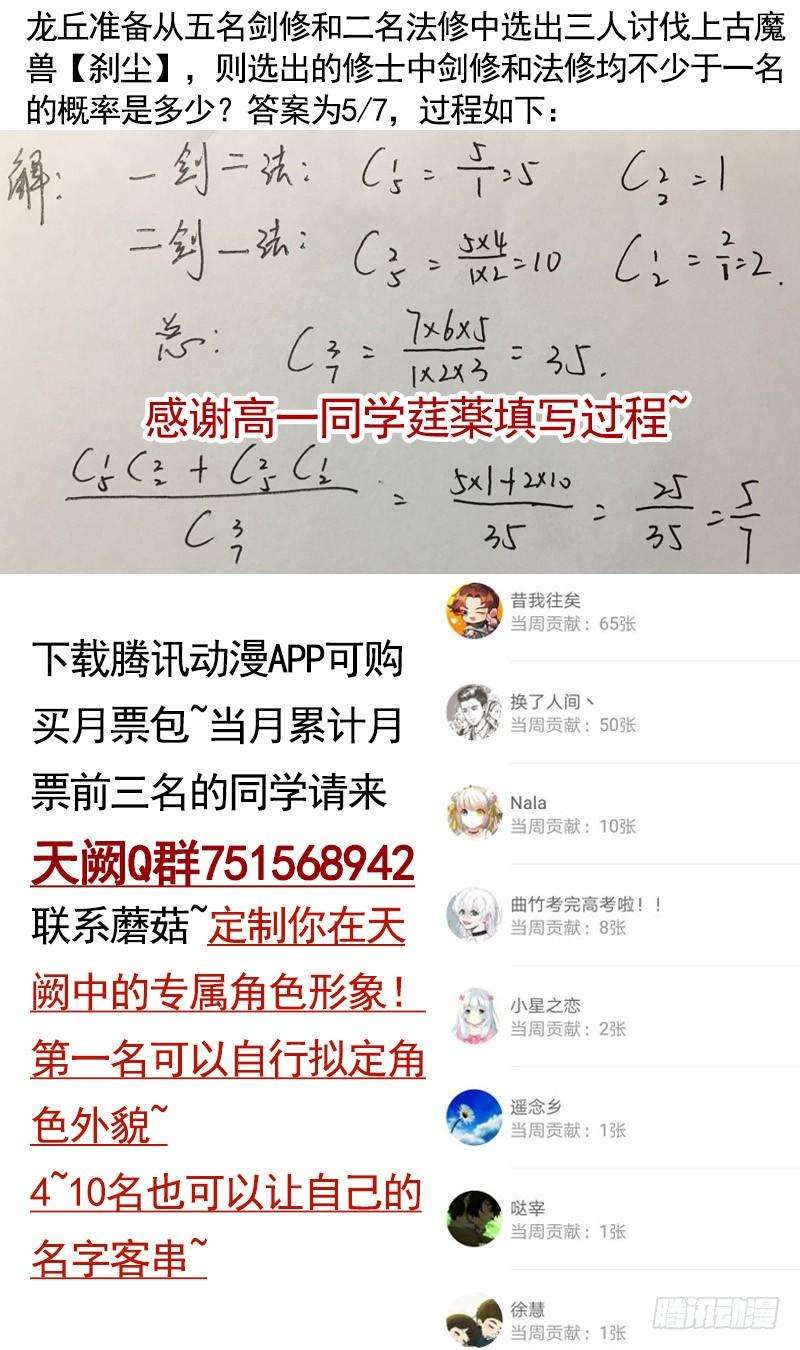 龙丘准备从五名剑修和二名法修中选出三人讨伐上古魔
兽【刹尘】，则选出的修士中剑修和法修均不少于一名
的概率是多少？答案为5/7，过程如下：
解： 一剑二法： C₅¹ = 5/1 = 5 C₂² = 1
二剑一法： C₅² = 5×4/1×2 = 10 C₂¹ = 2/1 = 2.
总： C₇³ = 7×6×5/1×2×3 = 35.
感谢高一同学莛薬填写过程~
C₅¹C₂² + C₅²C₂¹/C₇³ = 5×1+2×10/35 = 25/35 = 5/7
下载腾讯动漫APP可购
买月票包~当月累计月
票前三名的同学请来
天阙Q群751568942
联系蘑菇~定制你在天
阙中的专属角色形象！
第一名可以自行拟定角
色外貌~
4~10名也可以让自己的
名字客串~
昔我往矣
当周贡献：65张
换了人间丶
当周贡献：50张
Nala
当周贡献：10张
曲竹考完高考啦！！
当周贡献：8张
小星之恋
当周贡献：2张
遥念乡
当周贡献：1张
哒宰
当周贡献：1张
徐慧
当周贡献：1张
腾讯动漫